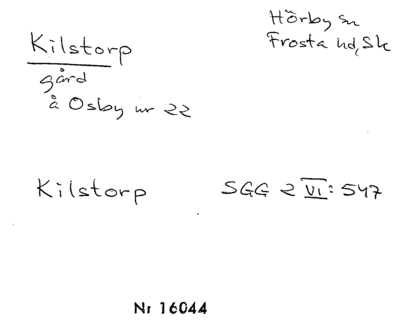 Kilstorp
Hörby sn
Frosta hd, Sk
gård
å Osby nr 22
Kilstorp SGG 2 VI: 547
Nr 16044